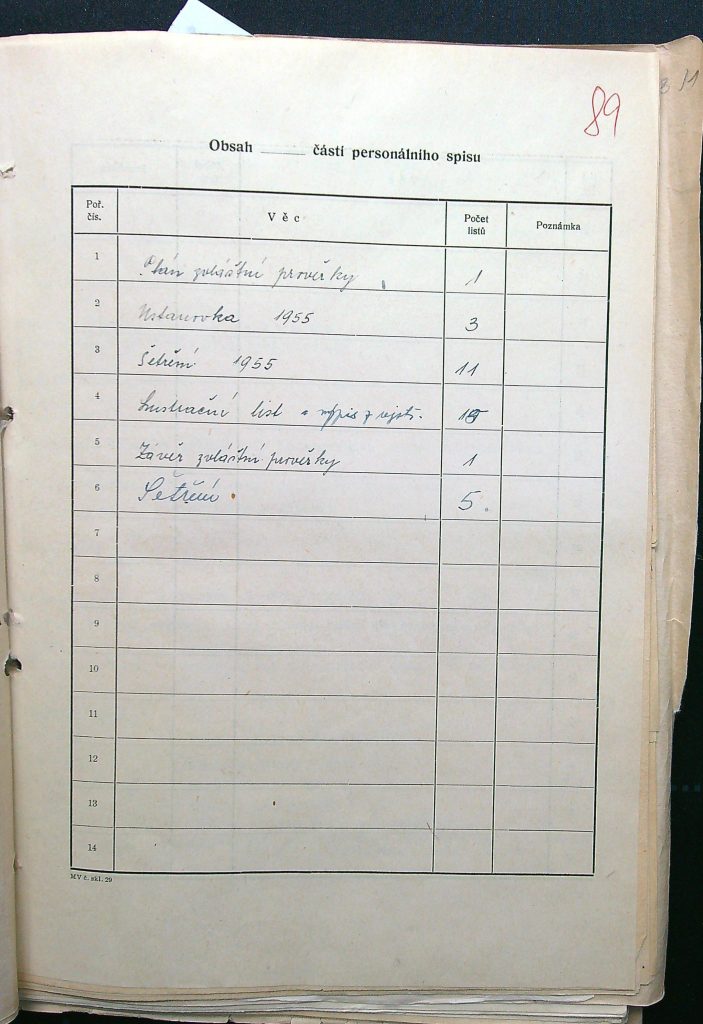 89
Obsah ______ části personálního spisu
Poř. čís. Věc Počet listů Poznámka
1 Plán zvláštní prověrky 1
2 Ustanovka 1955 3
3 Šetření 1955 11
4 Lustrační list a výpis z rejstř.
5 Závěr zvláštní prověrky 1
6 Šetření 5.
7
8
9
10
11
12
13
14
MV č. skl. 29